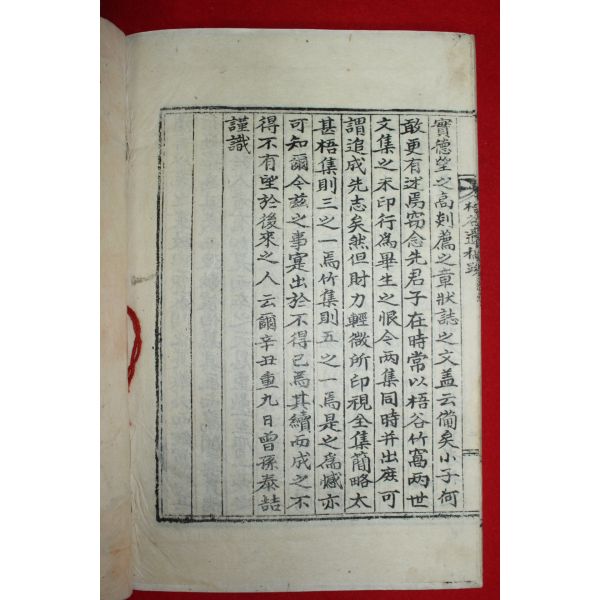 實德望之高剡薦之章狀誌之文盖云備矣小子何
敢更有述焉窃念先君子在時常以梧谷竹窩两世
文集之未印行爲畢生之恨今两集同時并出庶可
謂追成先志矣然但財力輕微所印視全集簡略太
甚梧集則三之一焉竹集則五之一焉是之爲憾亦
可知爾今玆之事寔出於不得已焉其續而成之不
得不有望於後來之人云爾辛丑重九日曾孫泰喆
謹識